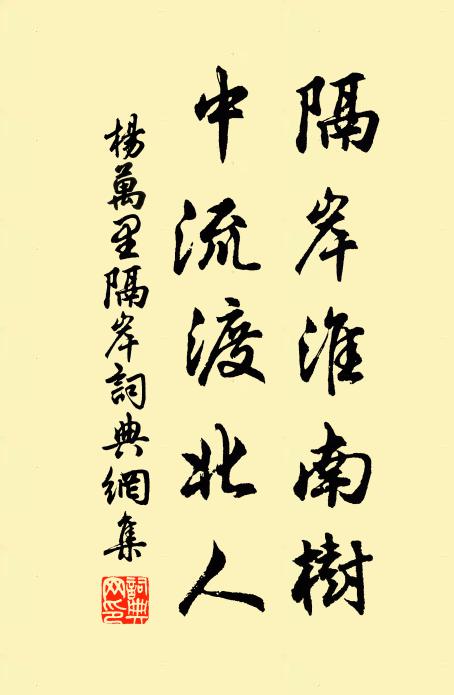 隔岸淮南樹
中流渡北人
楊萬里隔岸詞典網集
詞典网印